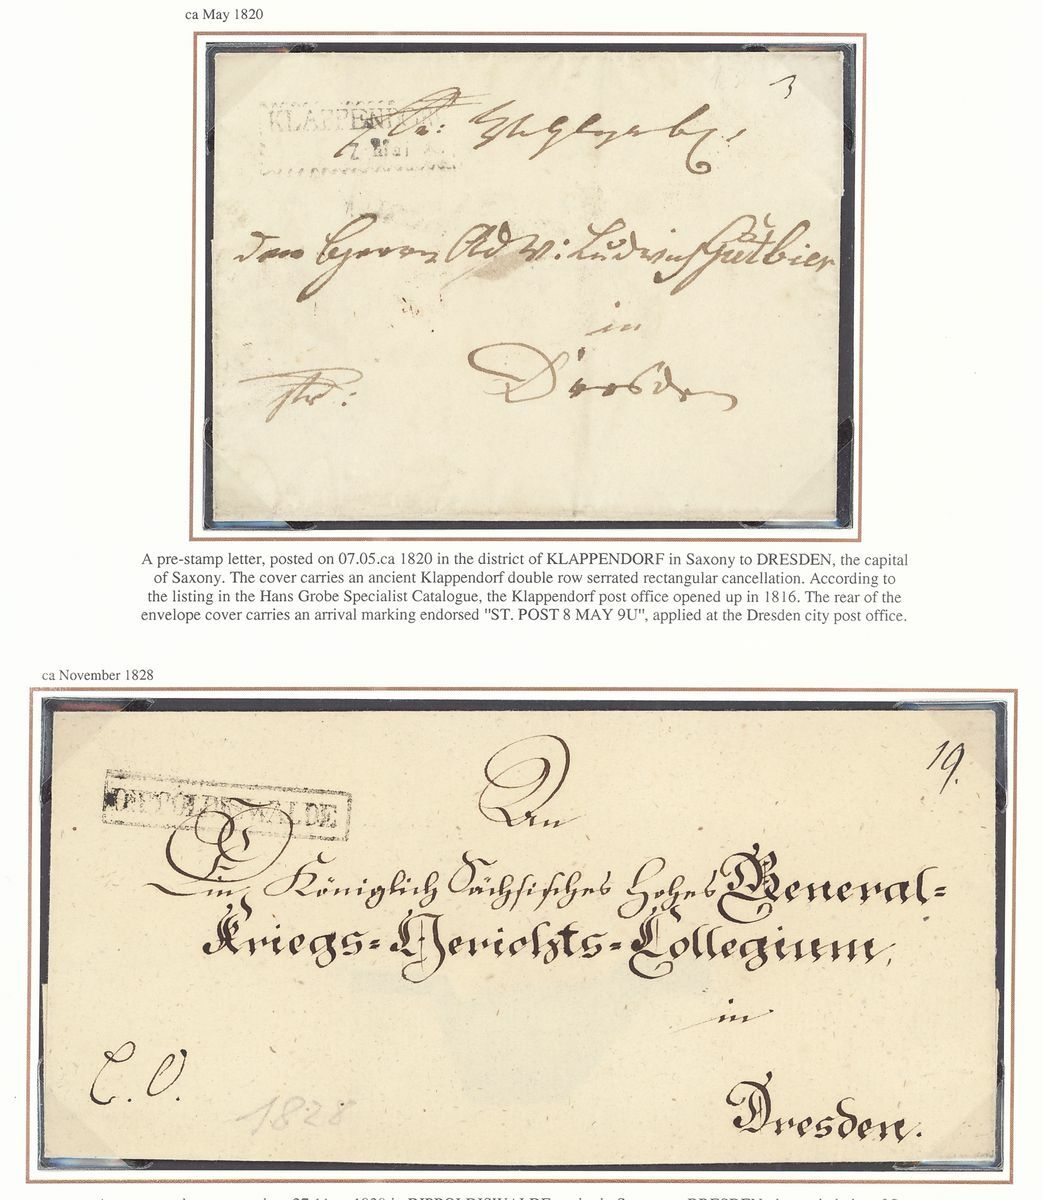 ca May 1820
3
KLAPPENDORF
7 Mai
den Herrn Adv: Ludwig
in
Dresden
fr:
A pre-stamp letter, posted on 07.05.ca 1820 in the district of KLAPPENDORF in Saxony to DRESDEN, the capital
of Saxony. The cover carries an ancient Klappendorf double row serrated rectangular cancellation. According to
the listing in the Hans Grobe Specialist Catalogue, the Klappendorf post office opened up in 1816. The rear of the
envelope cover carries an arrival marking endorsed "ST. POST 8 MAY 9U", applied at the Dresden city post office.
ca November 1828
19.
DIPPOLDISWALDE
An
Ein Königlich Sächsisches Hohes General-
Kriegs-Gerichts-Collegium,
in
C. O.
1828
Dresden.